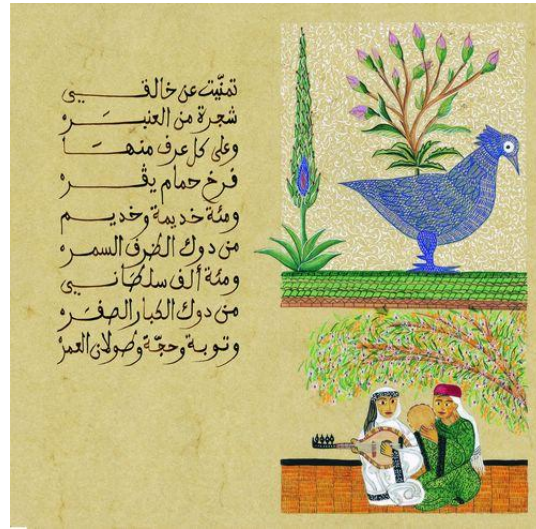 تمنّيت عن خالقي
شجرة من العنبره
وعلى كل عرف منها
فرخ حمام يقره
ومئة خديمة وخديم
من دوك الطرف السمره
ومئة ألف سلطاني
من دوك الكبار الصفره
وتوبة وحجّة وطولان العمر